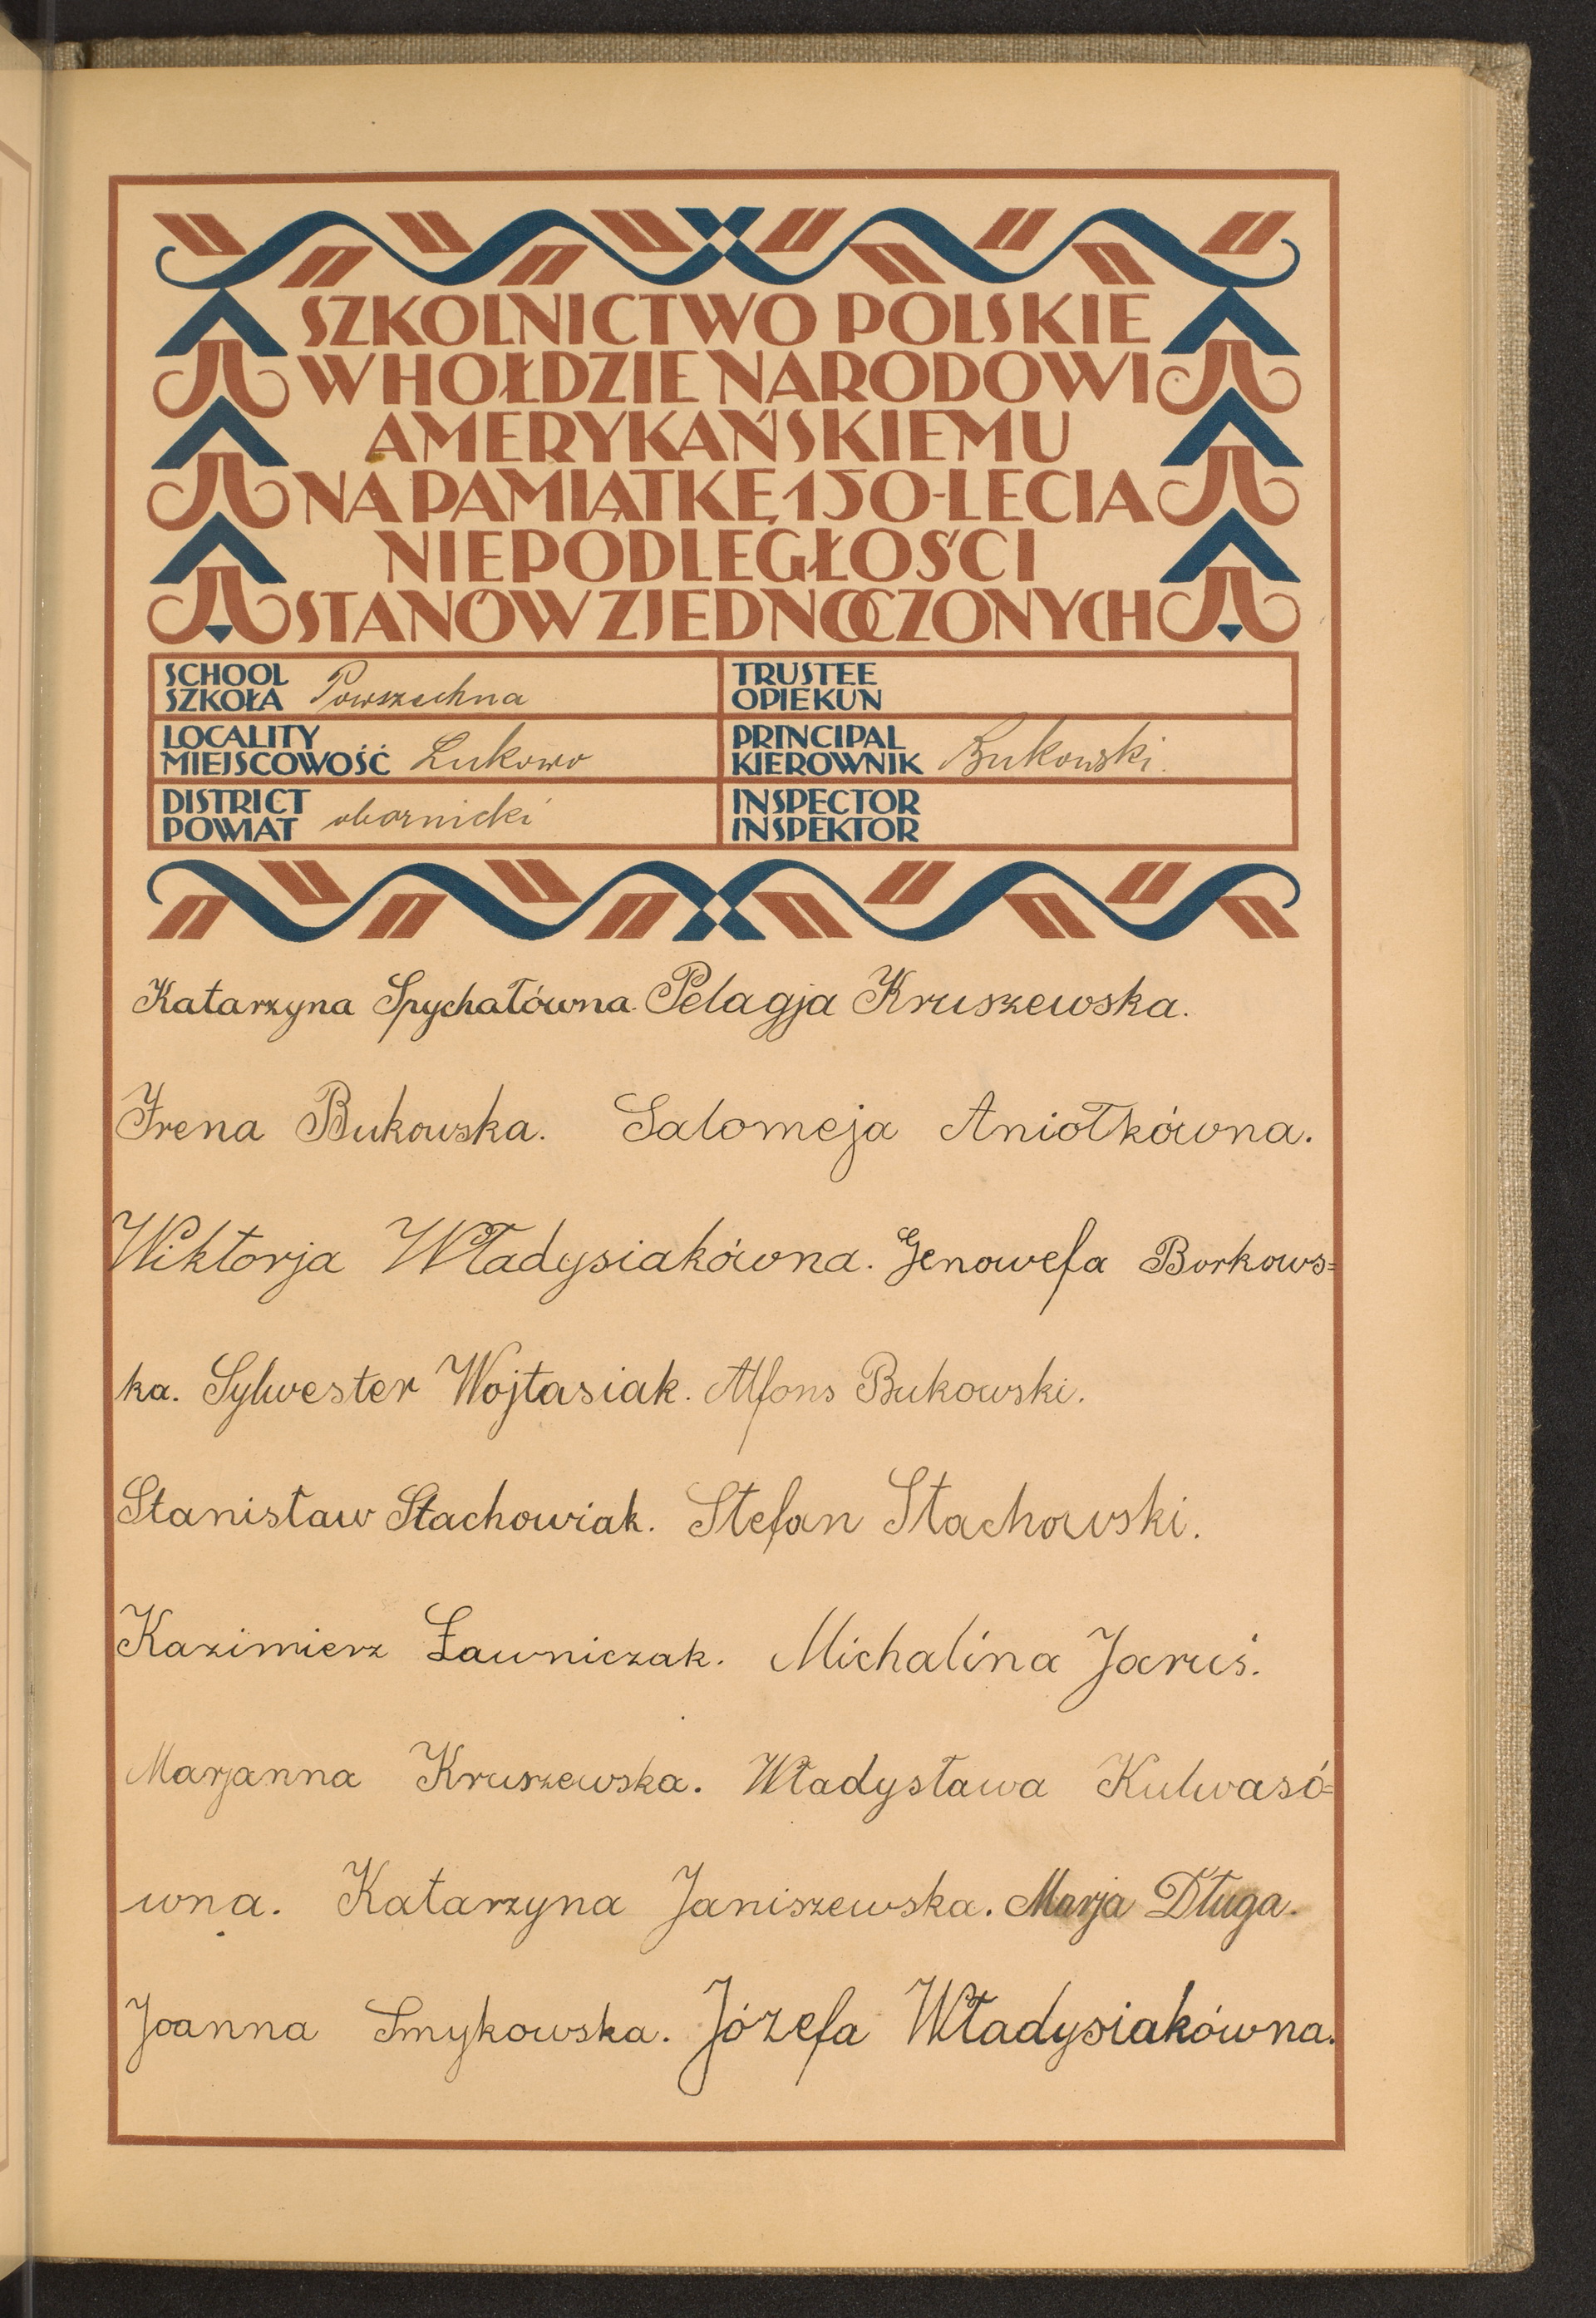 SZKOLNICTWO POLSKIE
W HOŁDZIE NARODOWI
AMERYKAŃSKIEMU
NA PAMIĄTKĘ 150-LECIA
NIEPODLEGŁOŚCI
STANÓW ZJEDNOCZONYCH
SCHOOL
SZKOŁA Powszechna
TRUSTEE
OPIEKUN
LOCALITY
MIEJSCOWOŚĆ Łukowo
PRINCIPAL
KIEROWNIK Bukowski.
DISTRICT
POWIAT obornicki
INSPECTOR
INSPEKTOR
Katarzyna Spychałówna. Pelagja Kruszewska.
Irena Bukowska. Salomeja Aniołkówna.
Wiktorja Władysiakówna. Genowefa Borkows=
ka. Sylwester Wojtasiak. Alfons Bukowski.
Stanisław Stachowiak. Stefan Stachowski.
Kazimierz Ławniczak. Michalina Jaruś.
Marjanna Kruszewska. Władysława Kulwasó=
wna. Katarzyna Janiszewska. Marja Długa.
Joanna Smykowska. Józefa Władysiakówna.